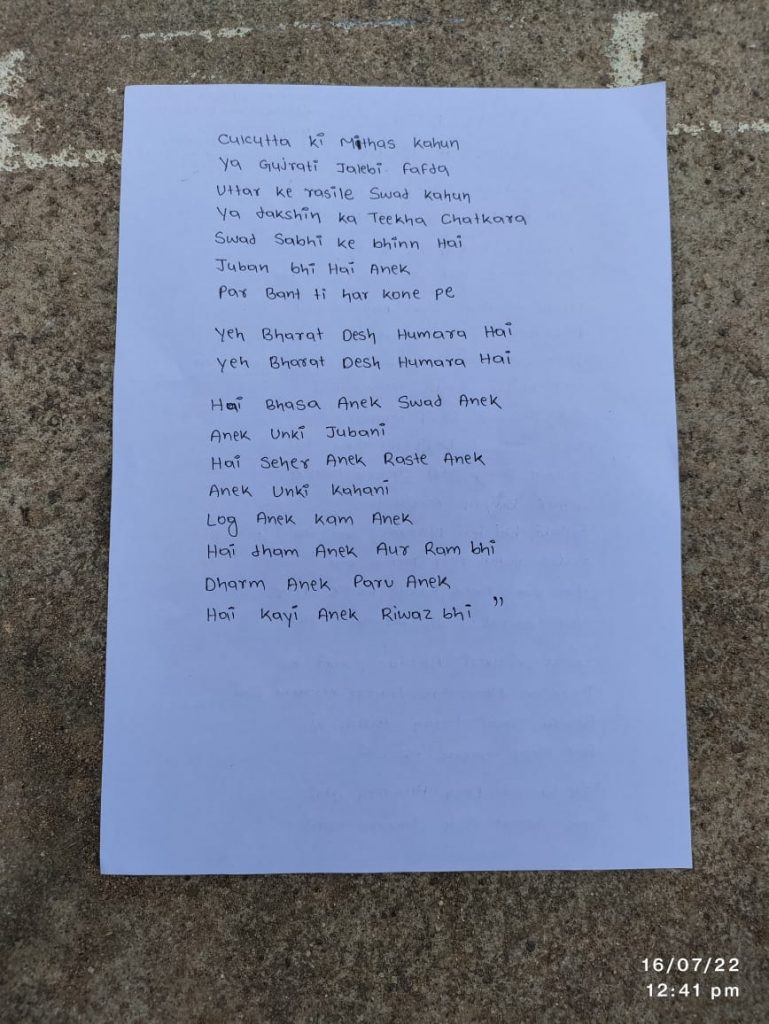 Culcutta ki Mithas Kahun
Ya Gujrati Jalebi fafda
Uttar ke rasile Swad Kahun
Ya dakshin ka Teekha Chatkara
Swad Sabhi ke bhinn Hai
Juban bhi Hai Anek
Par Bant ti har kone pe
Yeh Bharat Desh Humara Hai
Yeh Bharat Desh Humara Hai
Hai Bhasa Anek Swad Anek
Anek Unki Jubani
Hai Seher Anek Raste Anek
Anek Unki Kahani
Log Anek Kam Anek
Hai dham Anek Aur Ram bhi
Dharm Anek Parv Anek
Hai Kayi Anek Riwaz bhi ”
16/07/22
12:41 pm